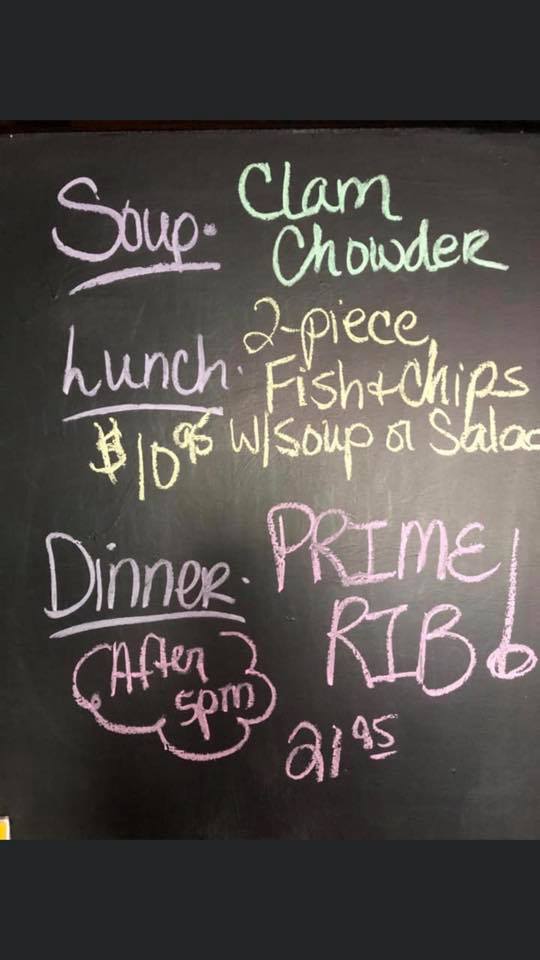 Soup. Clam
Chowder
Lunch. 2-piece
Fish + Chips
$10.95 w/soup or Salad
Dinner. PRIME
RIB!
(After
5pm)
21.95